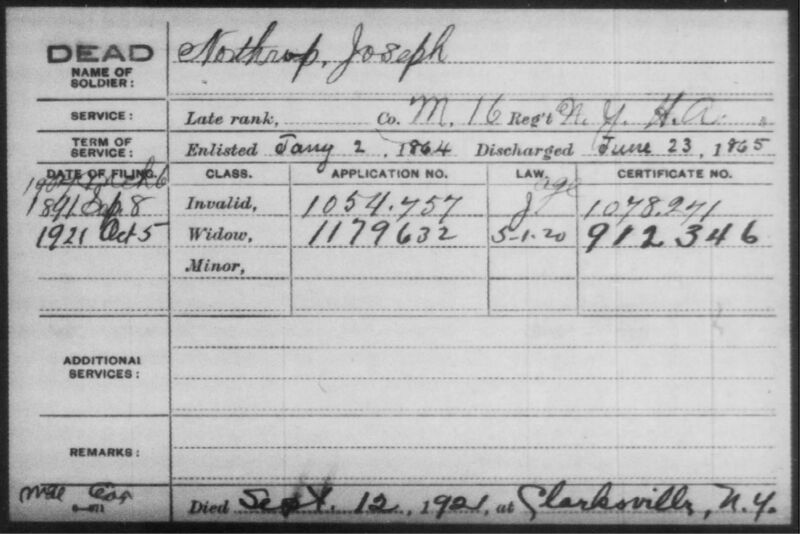 DEAD Northrop, Joseph
NAME OF
SOLDIER:
SERVICE: Late rank, Co. M, 16 Reg't N. Y. H. A.
TERM OF
SERVICE: Enlisted Jany 2, 1864 Discharged June 23, 1865
DATE OF FILING. CLASS. APPLICATION NO. LAW. CERTIFICATE NO.
1904 Mch 6 age
1891 Sep 8 Invalid, 1054.757 J 1078.271
1921 Oct 5 Widow, 1179632 5-1-20 912346
Minor,
ADDITIONAL
SERVICES:
REMARKS:
Died Sept. 12, 1921, at Clarksville, N.Y.